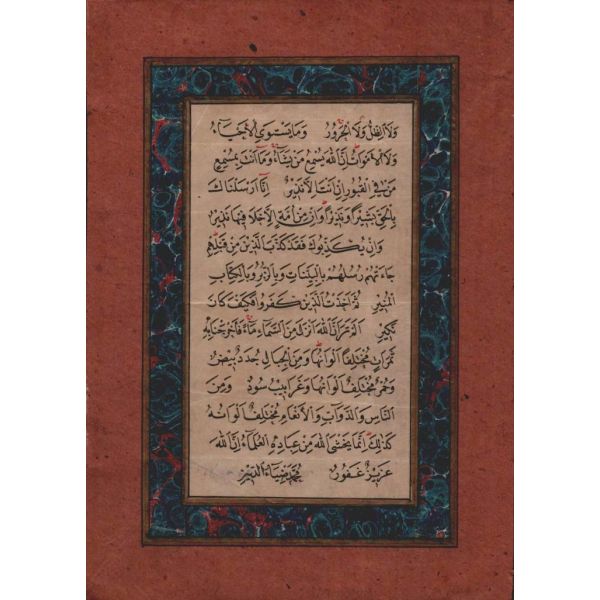 وَلَا الظِّلُّ وَلَا الْحَرُورُ وَمَا يَسْتَوِي الْأَحْيَاءُ
وَلَا الْأَمْوَاتُ إِنَّ اللهَ يُسْمِعُ مَنْ يَشَاءُ وَمَا أَنْتَ بِمُسْمِعٍ
مَنْ فِي الْقُبُورِ إِنْ أَنْتَ إِلَّا نَذِيرٌ إِنَّا أَرْسَلْنَاكَ
بِالْحَقِّ بَشِيرًا وَنَذِيرًا وَإِنْ مِنْ أُمَّةٍ إِلَّا خَلَا فِيهَا نَذِيرٌ
وَإِنْ يُكَذِّبُوكَ فَقَدْ كَذَّبَ الَّذِينَ مِنْ قَبْلِهِمْ
جَاءَتْهُمْ رُسُلُهُمْ بِالْبَيِّنَاتِ وَبِالزُّبُرِ وَبِالْكِتَابِ
الْمُنِيرِ ثُمَّ أَخَذْتُ الَّذِينَ كَفَرُوا فَكَيْفَ كَانَ
نَكِيرِ أَلَمْ تَرَ أَنَّ اللهَ أَنْزَلَ مِنَ السَّمَاءِ مَاءً فَأَخْرَجْنَا بِهِ
ثَمَرَاتٍ مُخْتَلِفًا أَلْوَانُهَا وَمِنَ الْجِبَالِ جُدَدٌ بِيضٌ
وَحُمْرٌ مُخْتَلِفٌ أَلْوَانُهَا وَغَرَابِيبُ سُودٌ وَمِنَ
النَّاسِ وَالدَّوَابِّ وَالْأَنْعَامِ مُخْتَلِفٌ أَلْوَانُهُ
كَذَلِكَ إِنَّمَا يَخْشَى اللهَ مِنْ عِبَادِهِ الْعُلَمَاءُ إِنَّ اللهَ
عَزِيزٌ غَفُورٌ مُحَمَّد ضِيَاءُ الدِّين